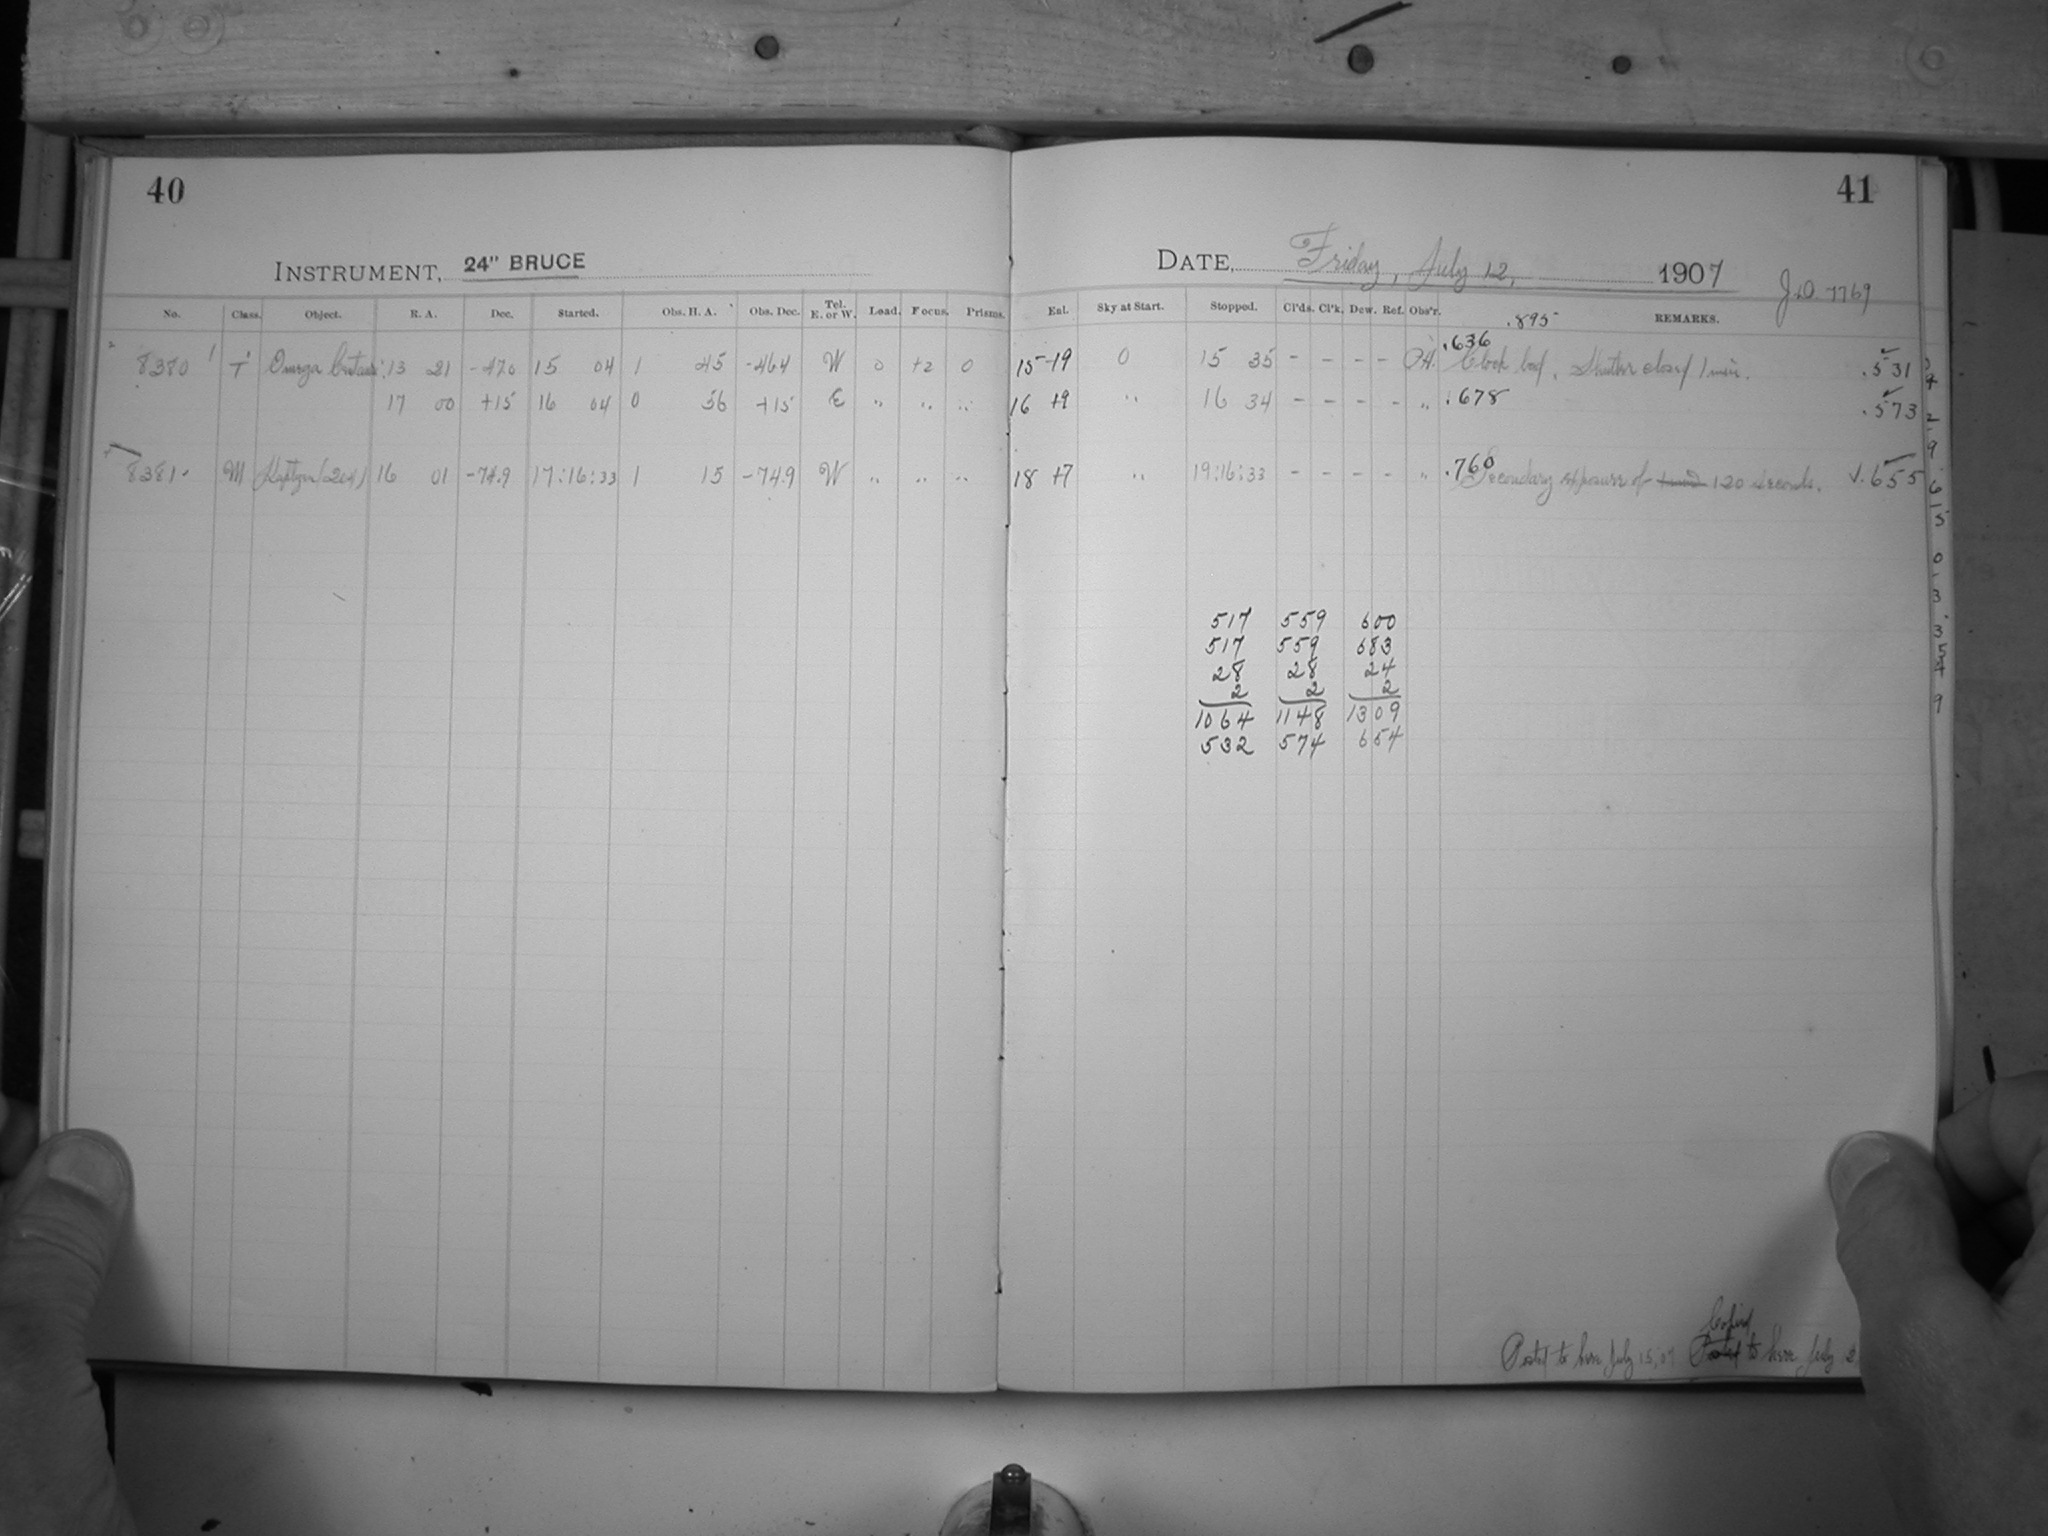 40
41
INSTRUMENT, 24" BRUCE
DATE, Friday, July 12, 1907
J.D. 7769
No. Class. Object. R. A. Dec. Started. Obs. H. A. Obs. Dec. Tel. E. or W. Load. Focus. Prisms. Eal. Sky at Start. Stopped. Cl'ds. Cl'k. Dew. Ref. Obs'r. REMARKS.
.895
.636
8380 T Omega Centauri 13 21 -47.0 15 04 1 45 -46.4 W 0 +2 0 15 -19 0 15 35 - - - - Clock bad. Shutter closed 1 min. .531
17 00 +15 16 04 0 56 +15 E " " " 16 +9 " 16 34 - - - - " .678 .573
8381 M Kapteyn (204) 16 01 -74.9 17:16:33 1 15 -74.9 W " " " 18 +7 " 19:16:33 - - - - " .760 Secondary exposure of 120 seconds. .655
517 559 600
517 559 683
28 28 24
2 2 2
1064 1148 1309
532 574 654
Copied
Posted to here July 15, 07 Posted to here July 2